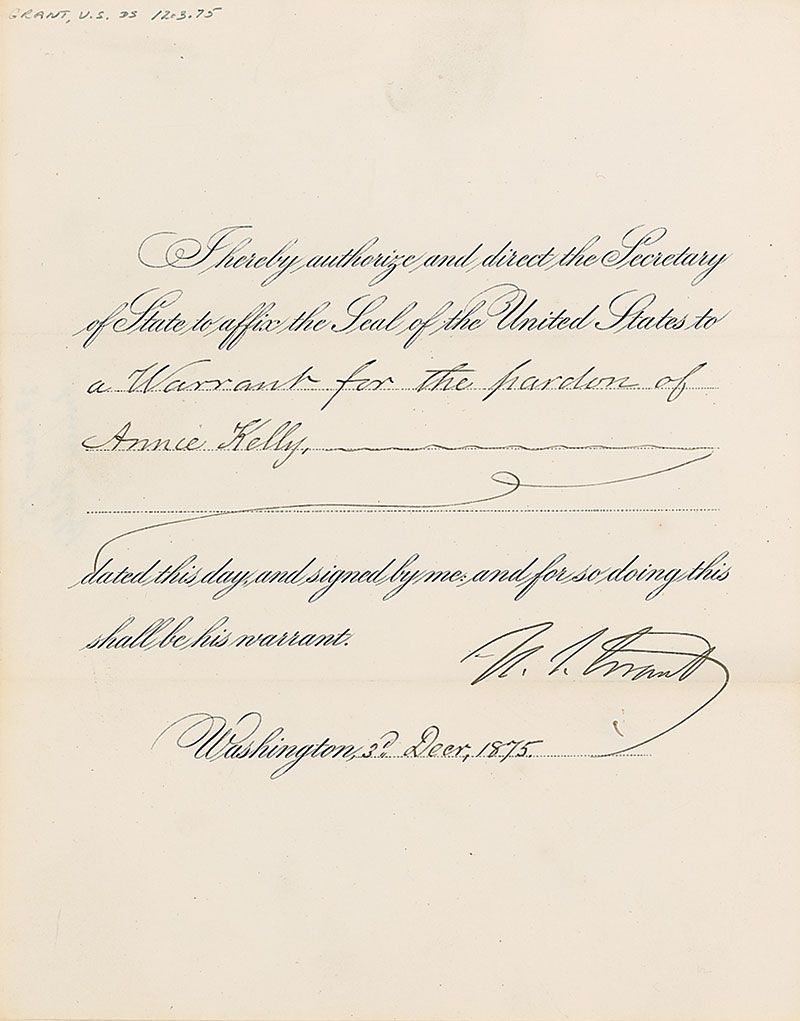 GRANT, U.S. DS 12.3.75
I hereby authorize and direct the Secretary
of State to affix the Seal of the United States to
a Warrant for the pardon of
Annie Kelly,
dated this day, and signed by me: and for so doing this
shall be his warrant.
U. S. Grant
Washington, 3d Decr, 1875.